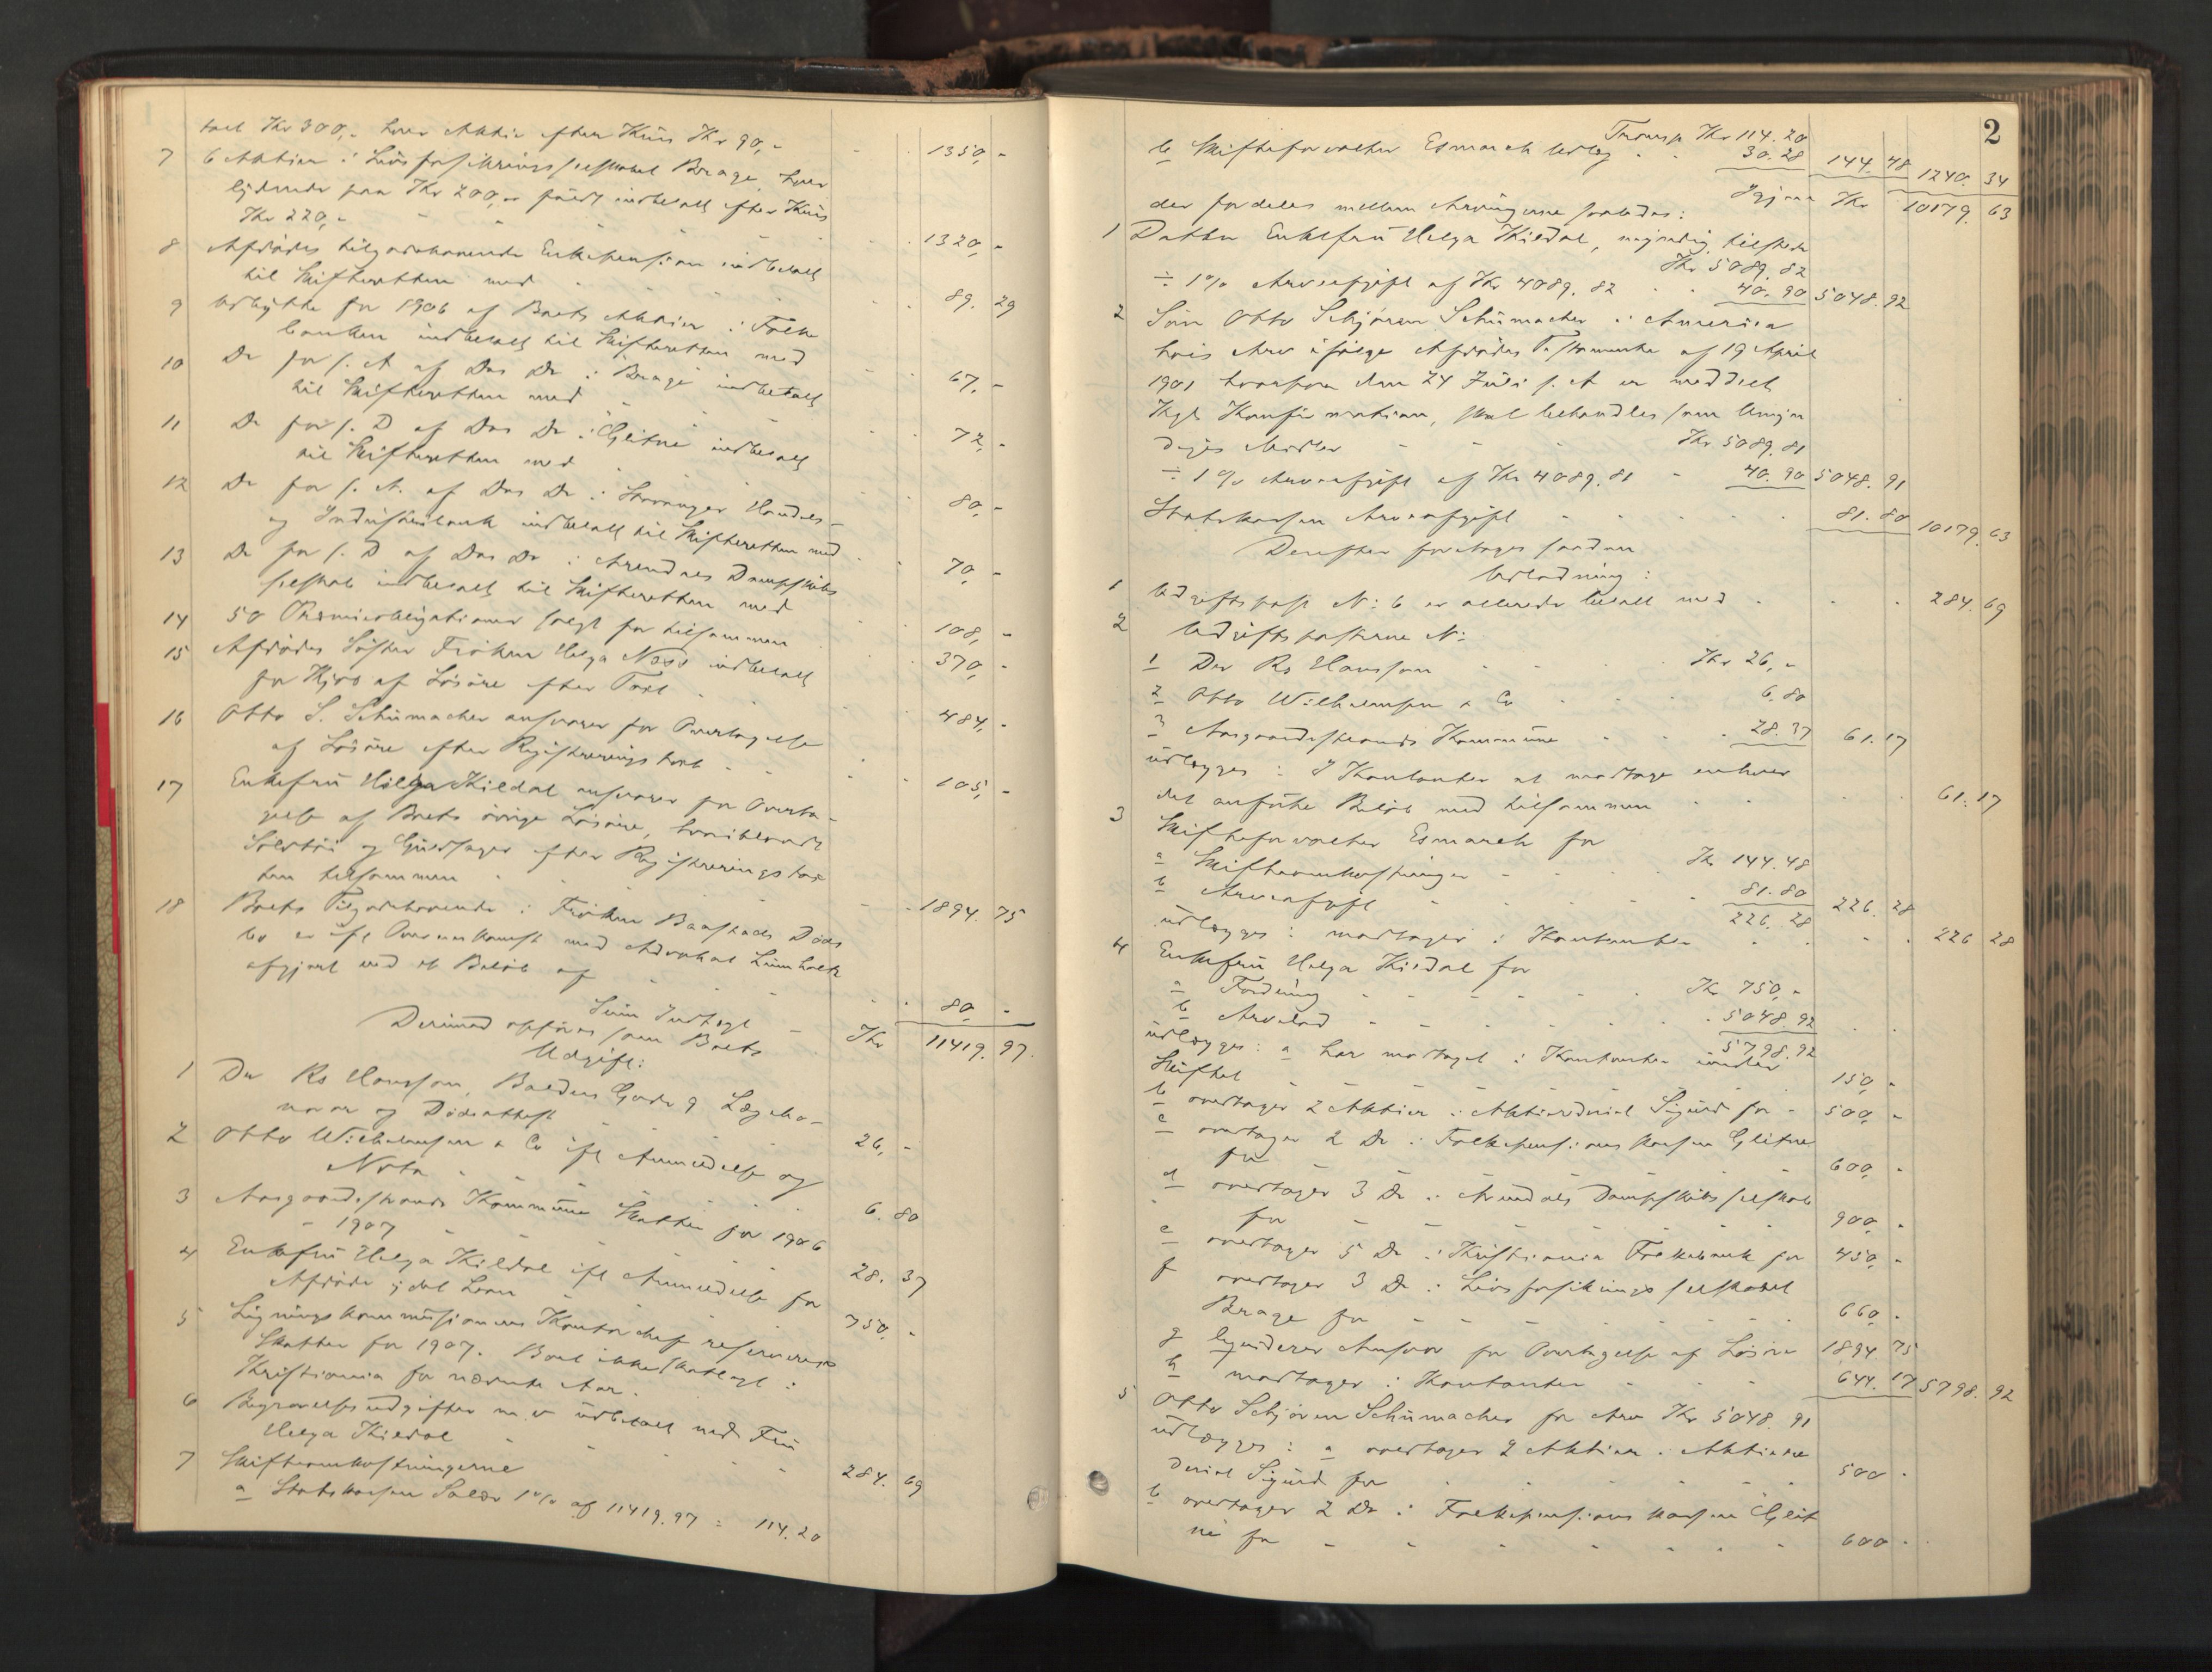 talt Kr 300,- hver Aktie efter Kurs Kr 90,- 1350,-
7 6 Aktier i Livsforsikringsselskabet Brage, hver
lydende paa Kr 200,- fuldt indbetalt efter Kurs
Kr 220,- 1320,-
8 Afdødes tilgodehavende Enkepension indbetalt
til Skifteretten med 89. 29
9 Udbytte for 1906 af Boets Aktier i Folke
banken indbetalt til Skifteretten med 67,-
10 Do for s. A af Do Do i Brage indbetalt
til Skifteretten med 72,-
11 Do for s. D af Do Do i Glitne indbetalt
til Skifteretten med 80,-
12 Do for s. A. af Do Do i Stavanger Handels-
og Industribank indbetalt til Skifteretten med 70,-
13 Do for s. D af Do Do i Arendals Dampskibs
selskab indbetalt til Skifteretten med 108,-
14 50 Præmieobligationer solgt for tilsammen 370,-
15 Afdødes Søster Frøken Helga Næss indbetalt
for Kjøb af Løsøre efter Taxt 484,-
16 Otto S. Schumacher ansvarer for Overtagelse
af Løsøre efter Registreringstaxt 105,-
17 Enkefru Helga Kildal ansvarer for Overta-
gelse af Boets øvrige Løsøre, hvoriblandt
Sølvtøi og Guldsager efter Registreringstax
ten tilsammen 1894. 75
18 Boets Tilgodehavende i Frøken Baastads Døds
bo er ifl Overenskomst med Advokat Lumholtz
afgjort med et Beløb af 80,-
Sum Indtægt Kr 11419. 97.
Derimod opføres som Boets
Udgift:
1 Dr Rs Hansson, Balders Gade 9 Lægeho-
norar og Dødsattest 26,-
2 Otto Wilhelmsen & Co ifl Anmeldelse og
Nota 6. 80
3 Aasgaardstrands Kommune Skatter for 1906
- 1907 28. 37
4 Enkefru Helga Kildal ifl Anmeldelse for
Afdøde ydet Laan 750,-
5 Ligningskommissionens Kontorchef reserveres
Skatter for 1907. Boet ikke skatlagt i
Kristiania for nævnte Aar.
6 Begravelsesudgifter m. v. udbetalt med Fru
Helga Kildal 284. 69
7 Skifteomkostningerne
a Statskassen Salær 1% af 11419.97 = 114.20
2
Transp Kr 114. 20
b Skifteforvalter Esmarch Udlæg 30. 28 144. 48 1240. 34
Igjen Kr 10179. 63
der fordeles mellem Arvingerne saaledes:
1 Datter Enkefru Helga Kildal, myndig, tilstede
Kr 5089. 82
÷ 1% Arveafgift af Kr 4089. 82 40. 90 5048. 92
2 Søn Otto Schjøren Schumacher i Amerika
hvis Arv ifølge Afdødes Testamente af 19 April
1901 hvorpaa den 24 Juli s. A er meddelt
Kgl Konfirmation, skal behandles som Umyn
diges Midler Kr 5089. 81
÷ 1% Arveafgift af Kr 4089. 81 40. 90 5048. 91
Statskassen Arveafgift 81. 80 10179. 63
Derefter foretages saadan
Udlodning:
1 Udgiftspost No 6 er allerede betalt med 284. 69
2 Udgiftsposterne No
1 Dr Rs Hansson Kr 26,-
2 Otto Wilhelmsen & Co 6. 80
3 Aasgaardstrands Kommune 28. 37 61. 17
udlægges: I Kontanter at modtage enhver
det anførte Beløb med tilsammen 61. 17
3 Skifteforvalter Esmarch for
a Skifteomkostninger Kr 144. 48
b Arveafgift 81. 80 226. 28
226. 28
udlægges: modtager i Kontanter 226 28
4 Enkefru Helga Kildal for
a Fordring Kr 750,-
b Arvelod 5048. 92
5798. 92
udlægges: a har modtaget i Kontanter under
Skiftet 150,-
b overtager 2 Aktier i Aktiendriet Sigurd for 500,-
c overtager 2 Do i Folkepensionskassen Glitne
for 600,-
d overtager 3 Do i Arendals Dampskibsselskab
for 900,-
e overtager 5 Do i Kristiania Folkebank for 450,-
f overtager 3 Do i Livsforsikringsselskabet
Brage for 660,-
g liqviderer Ansvar for Overtagelse af Løsøre 1894 75
h modtager i Kontanter 644. 17 5798. 92
5 Otto Schjøren Schumacher for Arv Kr 5048. 91
udlægges: a overtager 2 Aktier i Aktieren
deriet Sigurd for 500 -
b overtager 2 Do i Folkepensionskassen Glit
ne for 600 -